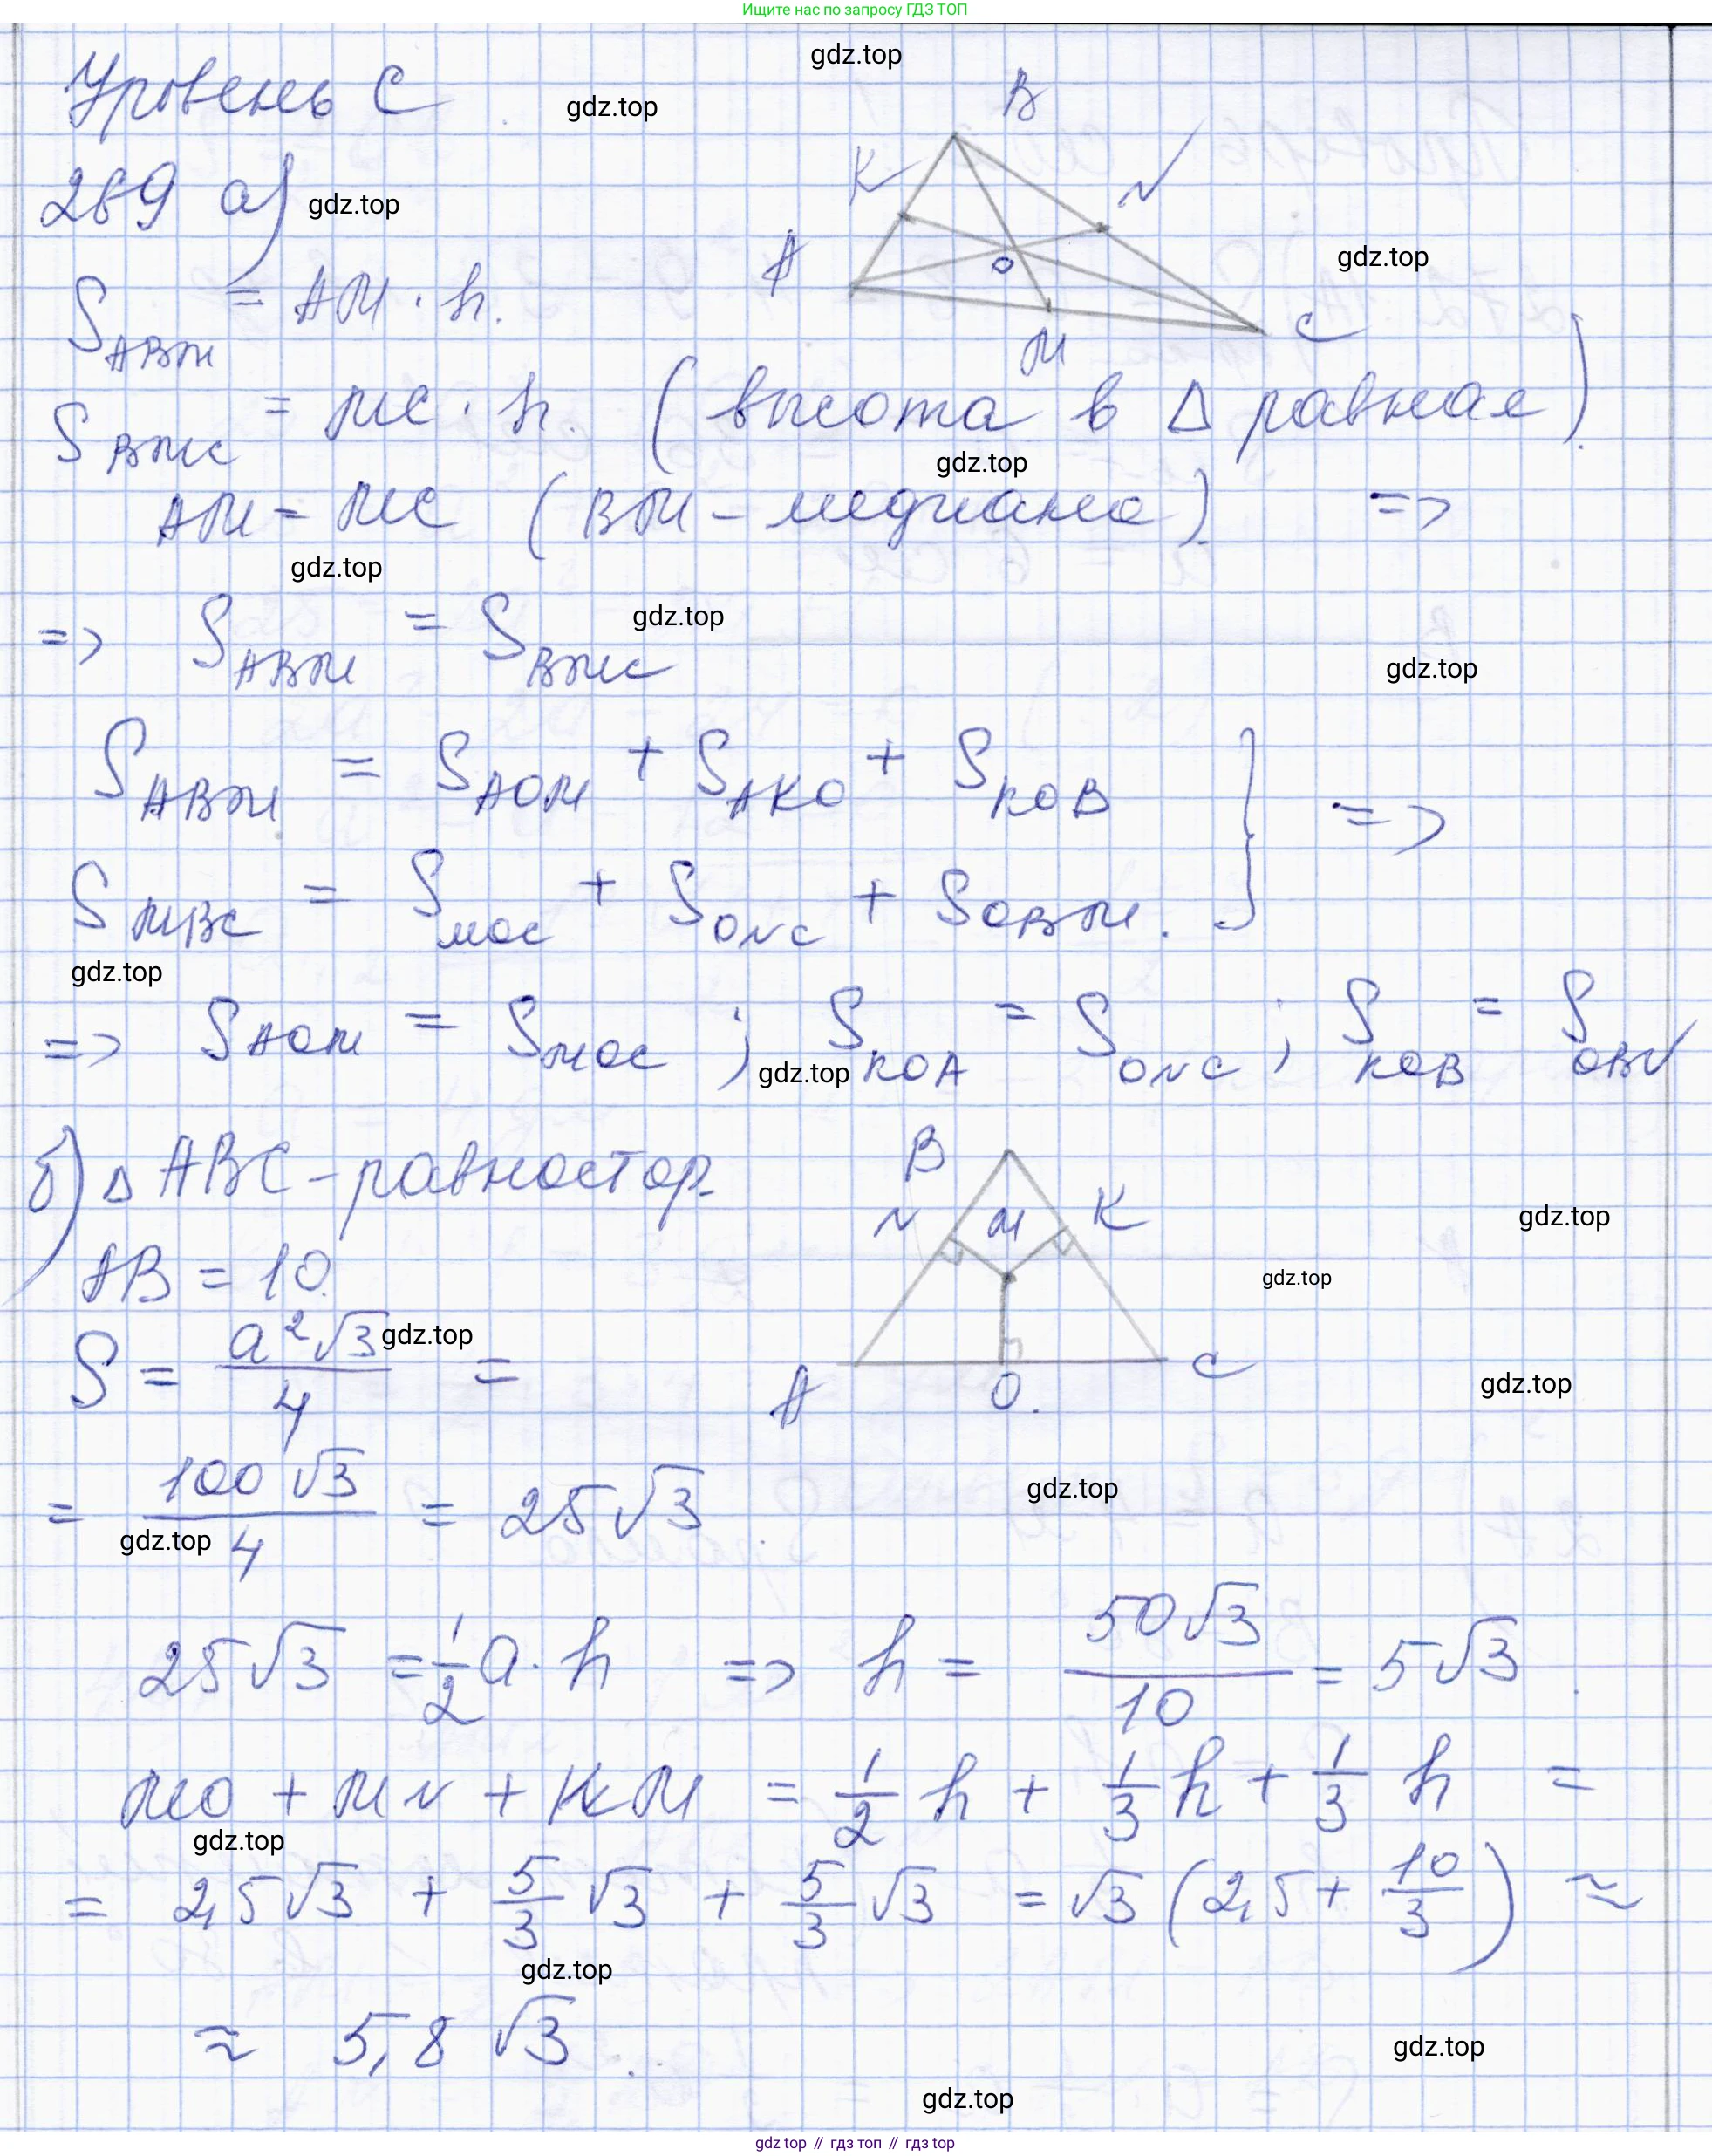 Ищите нас по запросу ГДЗ ТОП
gdz.top
Уровень С
gdz.top
B
K
N
269 а)
gdz.top
A
O
gdz.top
S_ABM = AM · h.
C
M
S_BMC = MC · h. (высота в Δ равная).
gdz.top
AM = MC (BM – медиана). =>
gdz.top
=> S_ABM = S_BMC
gdz.top
gdz.top
S_ABM = S_AOM + S_AKO + S_KOB
} =>
S_MBC = S_MOC + S_ONC + S_OBM.
gdz.top
=> S_AOM = S_MOC ; S_KOA = S_ONC ; S_KOB = S_OBN
gdz.top
б) Δ ABC – равностор.
B
N
M
K
gdz.top
AB = 10.
gdz.top
S = a²√3/4 =
gdz.top
A
O.
C
gdz.top
= 100√3/4 = 25√3.
gdz.top
gdz.top
25√3 = 1/2 a · h => h = 50√3/10 = 5√3.
MO + MN + KM = 1/2 h + 1/3 h + 1/3 h =
gdz.top
= 2,5√3 + 5/3 √3 + 5/3 √3 = √3 (2,5 + 10/3) ≈
gdz.top
≈ 5,8 √3.
gdz.top
gdz.top
gdz top // гдз топ // гдз top